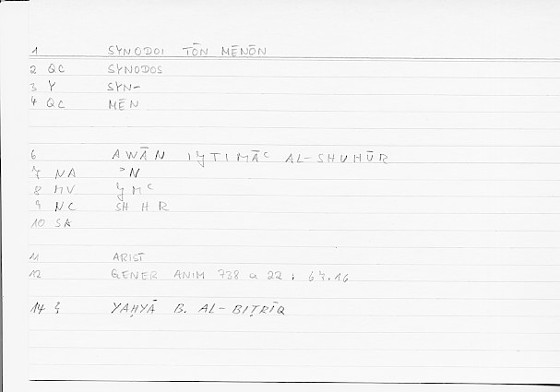 1 SYNODOI TŌN MĒNŌN
2 QC SYNODOS
3 Y SYN-
4 QC MĒN
6 AWĀN IǦTIMĀʿ AL-SHUHŪR
7 NA ʾN
8 MV ǦMʿ
9 NC SHHR
10 SA
11 ARIST
12 GENER ANIM 738 a 22 : 67.16
14 YAḤYĀ B. AL-BIṬRĪQ